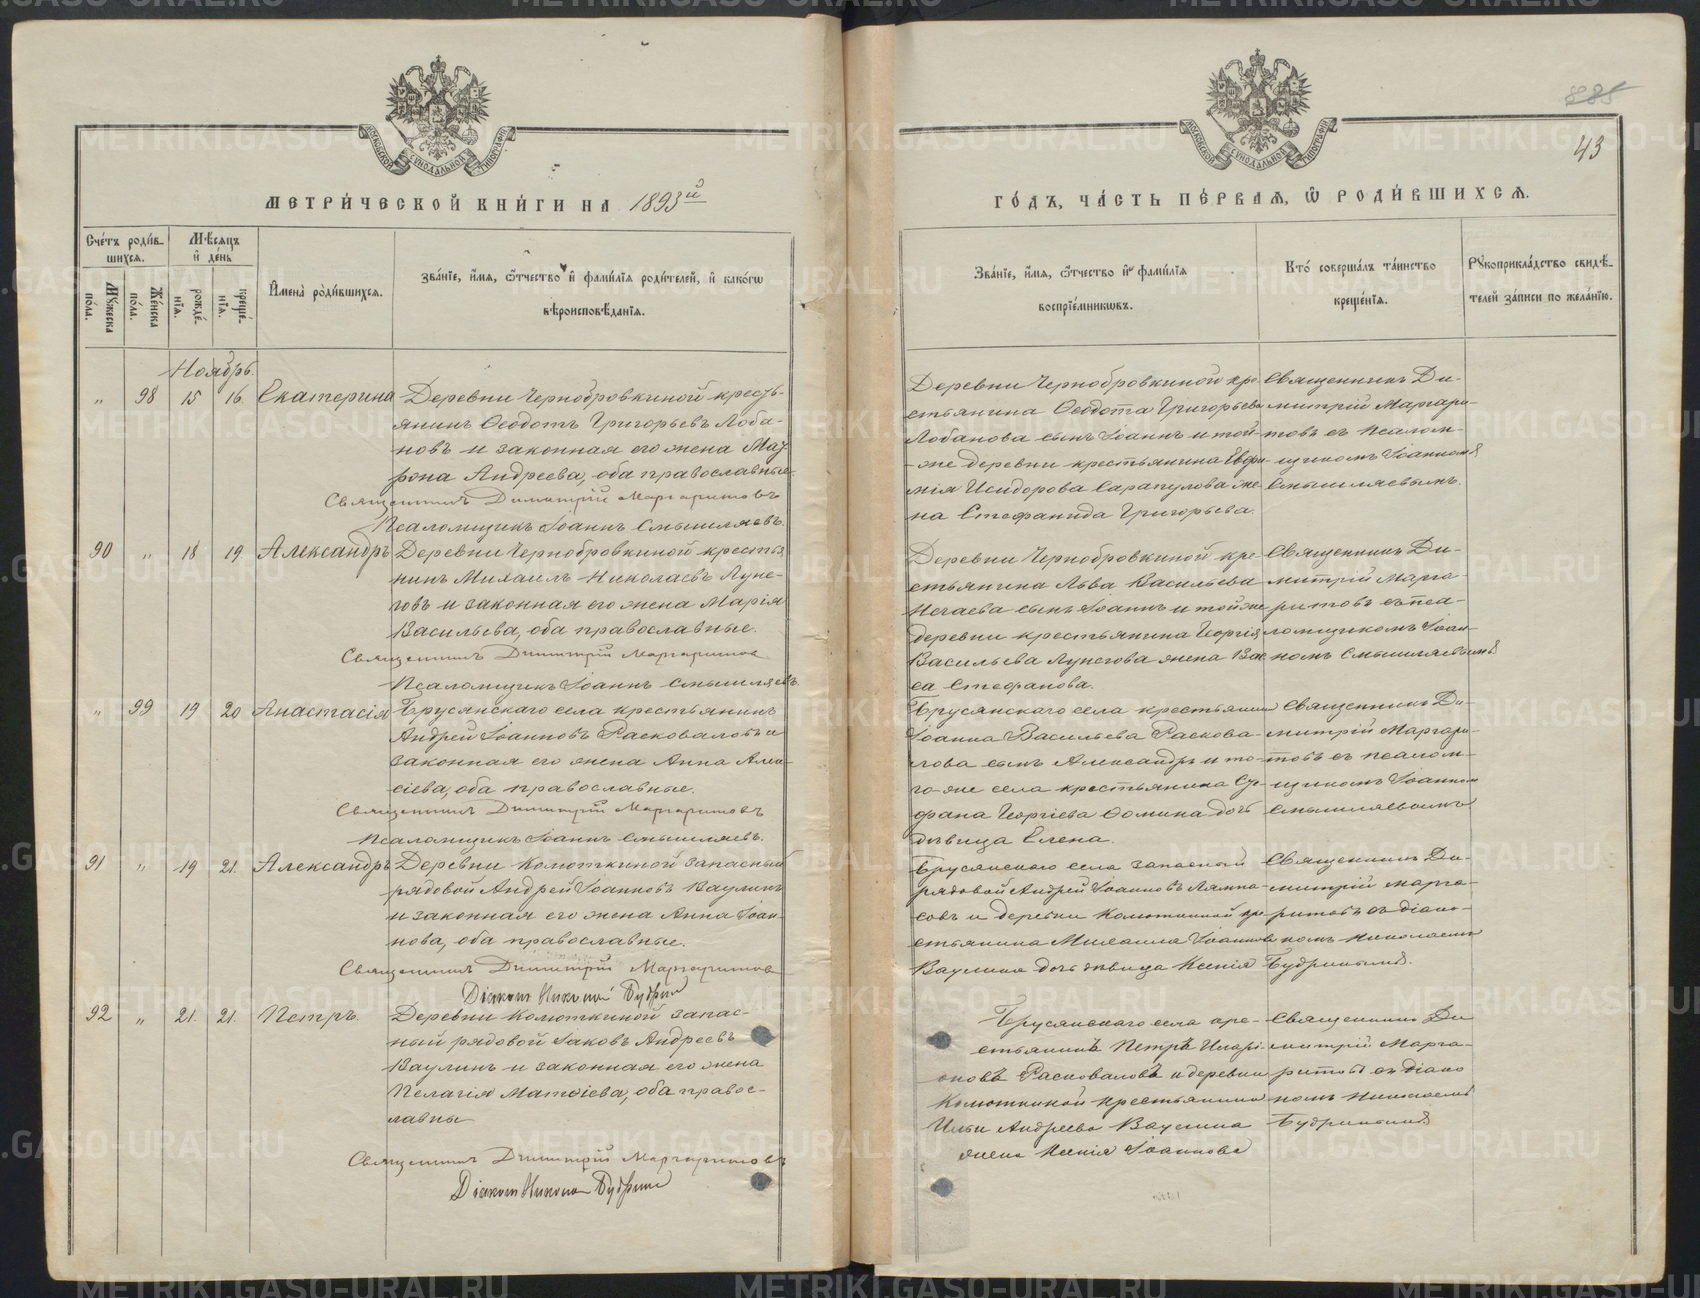 885
43
МОСКОВСКОЙ СѴНОДАЛЬНОЙ ТИПОГРАФІИ
МОСКОВСКОЙ СѴНОДАЛЬНОЙ ТИПОГРАФІИ
МЕТРИ́ЧЕСКОЙ КНИ́ГИ НА 1893й
ГО́ДЪ, ЧА́СТЬ ПЕ́РВАЯ, Ѽ РОДИ́ВШИХСЯ.
Сче́тъ роди́в-
шихся.
Мѣсяцъ
и̂ де́нь
Мꙋжеска
по́ла.
Же́нска
по́ла.
рожде́-
нїя.
креще́-
нїя.
И̂мена̀ роди́вшихся.
Зва́нїе, и́мя, ѻ҆́тчество и҆ фами́лїя роди́телей, и҆ како́гѡ
вѣроисповѣ́данїя.
Зва́нїе, и́мя, ѻ҆́тчество и҆ фами́лїя
воспрїе́мниковъ.
Кто́ соверша́лъ та́инство
креще́нїя.
Рꙋкоприкла́дство свидѣ́-
телей за́писи по жела́нїю.
Ноябрь.
" 98 15 16 Екатерина
Деревни Чернобровкиной кресть-
янинъ Ѳеодотъ Григорьевъ Лоба-
новъ и законная его жена Мат-
рона Андреева, оба православные
Священникъ Димитрій Маргаритовъ
Псаломщикъ Іоаннъ Смышляевъ.
Деревни Чернобровкиной кре-
стьянина Ѳеодота Григорьева
Лобанова сынъ Іоаннъ и той-
же деревни крестьянина Евфи-
мія Исидорова Сарапулова же-
на Стефанида Григорьева.
Священникъ Ди-
митрій Маргари-
товъ съ псалом-
щикомъ Іоанномъ
Смышляевымъ.
90 " 18 19 Александръ
Деревни Чернобровкиной крестья
нинъ Михаилъ Николаевъ Луне-
говъ и законная его жена Марія
Васильева, оба православные.
Священникъ Димитрій Маргаритовъ
Псаломщикъ Іоаннъ Смышляевъ.
Деревни Чернобровкиной кре-
стьянина Льва Васильева
Нечаева сынъ Іоаннъ и той же
деревни крестьянина Георгія
Васильева Лунегова жена Вас
са Стефанова.
Священникъ Ди-
митрій Марга-
ритовъ съ пса-
ломщикомъ Іоан-
номъ Смышляевымъ
" 99 19 20 Анастасія
Брусянскаго села крестьянинъ
Андрей Іоанновъ Расковаловъ и
законная его жена Анна Алек-
сіева, оба православные.
Священникъ Димитрій Маргаритовъ
Псаломщикъ Іоаннъ Смышляевъ.
Брусянскаго села крестьянина
Іоанна Васильева Раскова-
лова сынъ Александръ и то-
го-же села крестьянина
Георгіева Ѳомина дочь
дѣвица Елена.
Священникъ Ди-
митрій Маргари-
товъ съ псалом-
щикомъ Іоанномъ
Смышляевымъ
91 " 19 21. Александръ
Деревни Колюткиной запасный
рядовой Андрей Іоанновъ Ваулинъ
и законная его жена Анна Іоан-
нова, оба православные.
Священникъ Димитрій Маргаритовъ
Діаконъ Николай Будринъ
Брусянскаго села запасный
рядовой Андрей Іоанновъ
и деревни Колюткиной кре
стьянина Михаила Іоаннова
Ваулина дочь дѣвица Ксенія
Священникъ Ди-
митрій Марга-
ритовъ съ діако-
номъ Николаемъ
Будринымъ.
92 " 21. 21. Петръ.
Деревни Колюткиной запас-
ный рядовой Іаковъ Андреевъ
Ваулинъ и законная его жена
Пелагія Матѳіева, оба правос-
лавны
Священникъ Димитрій Маргаритовъ
Діаконъ Николай Будринъ
Брусянскаго села кре-
стьянинъ Петръ Иларі-
оновъ Расковаловъ и деревни
Колюткиной крестьянина
Ильи Андреева Ваулина
жена Ксенія Іоаннова
Священникъ Ди
митрій Марга-
ритовъ съ діако
номъ Николаемъ
Будринымъ
METRIKI.GASO-URAL.RU